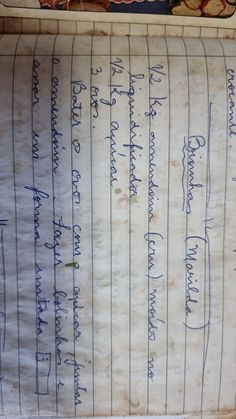 crocante.
Biminhas (Marilda)
1/2 Kg amendoim (cru) moído no
liquidificador
1/2 Kg açúcar
3 ovos.
Bater os ovos com o açúcar, juntar
o amendoim fazer bolinhas e
assar em forma untada